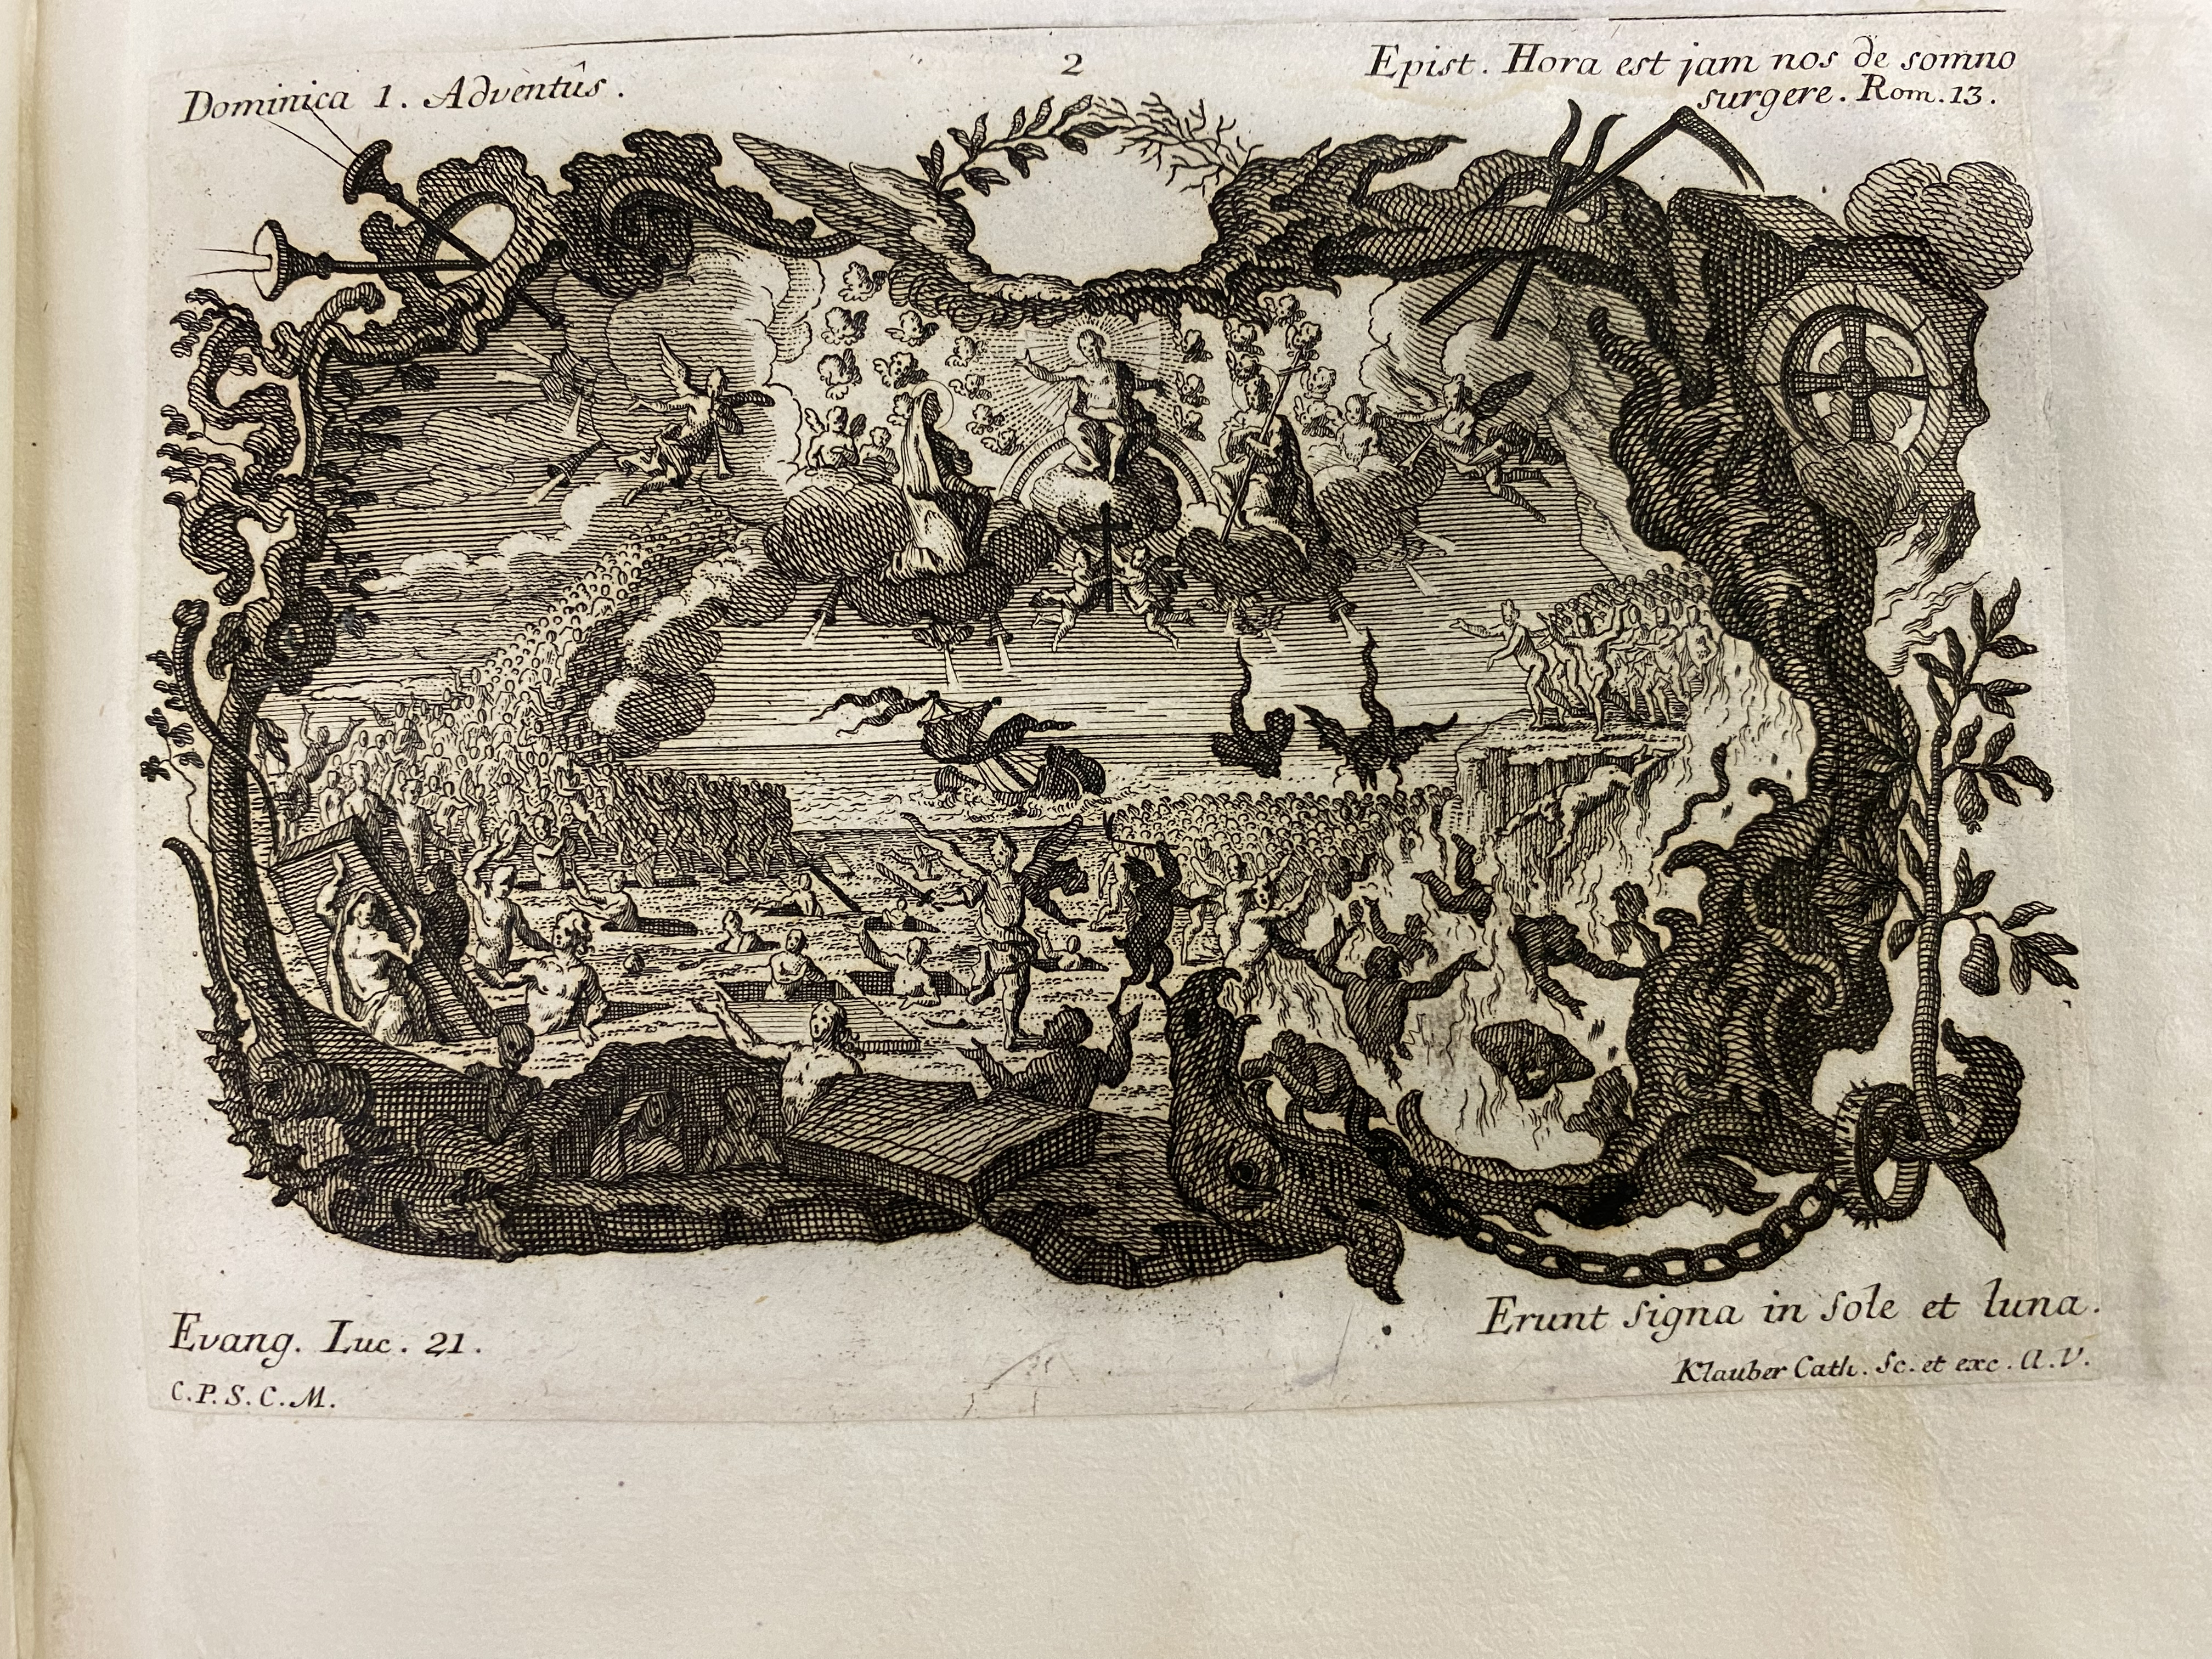 Dominica 1. Adventûs.
2
Epist. Hora est jam nos de somno
surgere. Rom. 13.
Evang. Luc. 21.
Erunt signa in sole et luna.
C.P.S.C.M.
Klauber Cath. Sc. et exc. A.V.